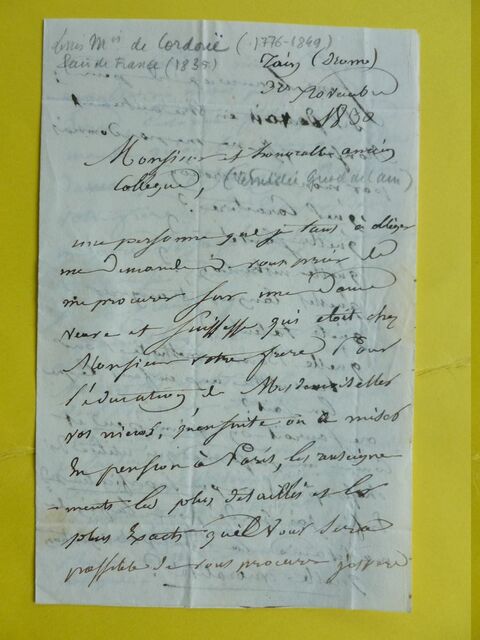 Louis Mis de Cordoüe (1776-1849)
Pair de France (1835)
Tain (Drome)
Novembre
1830
Monsieur et honorable ancien
Collegue,
une personne que je tans à obliger
me demande de vous prier de
me procurer sur une dame
veuve et Suissesse qui etoit chez
Monsieur votre frere pour
l'éducation de Mesdemoiselles
vos nieces, qu'ensuite on a mises
en pension à Paris, les renseigne
ments les plus détaillés et les
plus exacts qu'il vous sera
possible de vous procurer j'espere